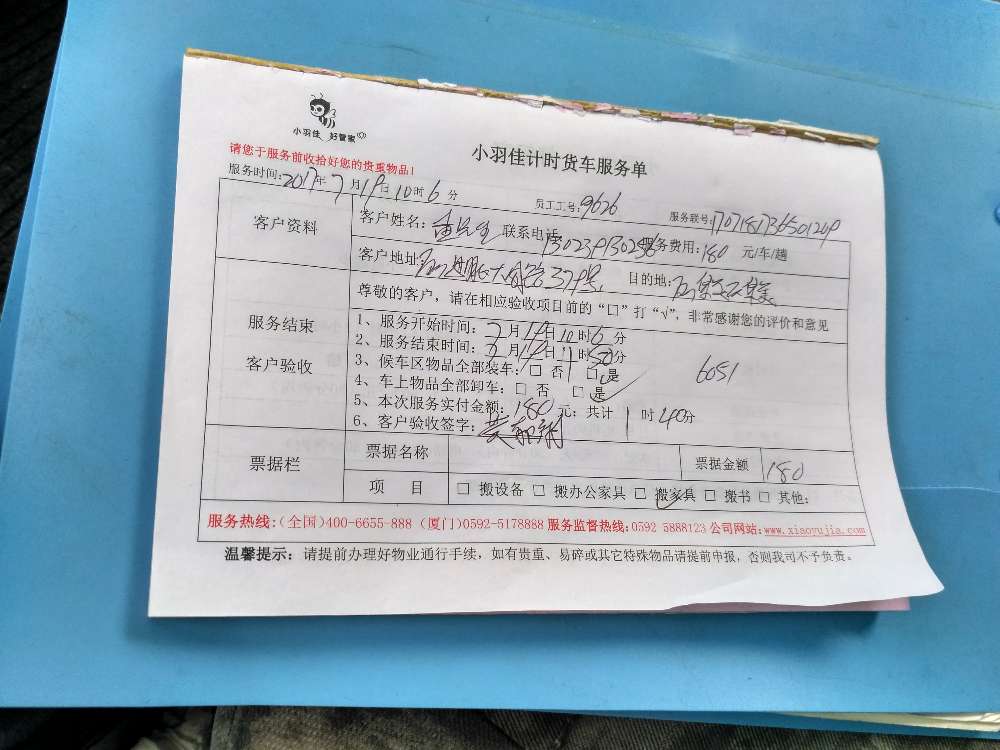 小羽佳 好管家
请您于服务前收拾好您的贵重物品!
小羽佳计时货车服务单
服务时间:2017年7月19日10时6分 员工工号:9626 服务联号:
客户资料
客户姓名: 联系电话: 服务费用:180 元/车/趟
客户地址: 目的地:
尊敬的客户,请在相应验收项目前的“口”打“√”,非常感谢您的评价和意见
服务结束
客户验收
1、服务开始时间:7月19日10时6分
2、服务结束时间:7月19日11时50分
3、候车区物品全部装车:□ 否 □ 是
4、车上物品全部卸车:□ 否 □ 是
5、本次服务实付金额:180元;共计 1时40分
6、客户验收签字:
6051
票据栏
票据名称 票据金额 180
项 目 □ 搬设备 □ 搬办公家具 □ 搬家具 □ 搬书 □ 其他:
服务热线:(全国)400-6655-888 (厦门)0592-5178888 服务监督热线:0592 5888123 公司网站:www.xiaoyujia.com
温馨提示: 请提前办理好物业通行手续,如有贵重、易碎或其它特殊物品请提前申报,否则我司不予负责。